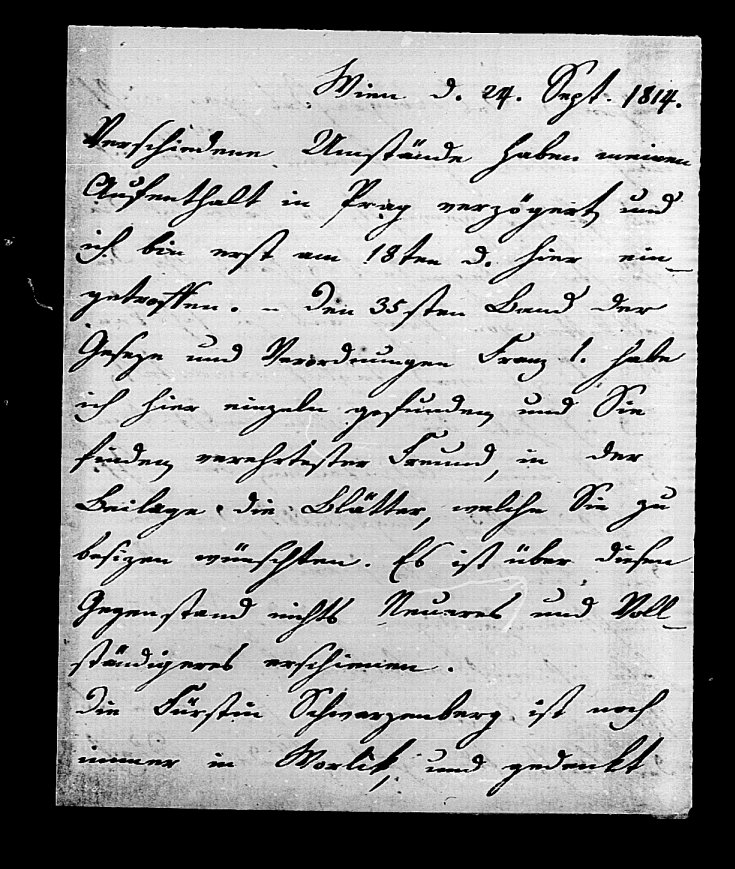 Wien d. 24. Sept. 1814.
Verschiedene Umstände haben meinen
Aufenthalt in Prag verzögert, und
ich bin erst am 18ten d. hier ein-
getroffen. – Den 35sten Band der
Geseze und Verordnungen Franz I. habe
ich hier einzeln gefunden, und Sie
finden, verehrtester Freund, in der
Beilage die Blätter, welche Sie zu
besizen wünschten. Es ist über diesen
Gegenstand nichts Neueres und Voll-
ständigeres erschienen.
Die Fürstin Schwarzenberg ist noch
immer in Worlik, und gedenkt